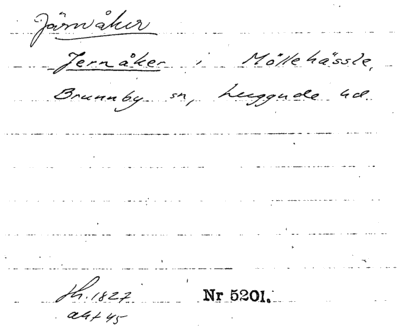 Järnåker
Jernåker i Möllehässle,
Brunnby sn, Luggude hd
sh. 1827 Nr 5201.
akt 45